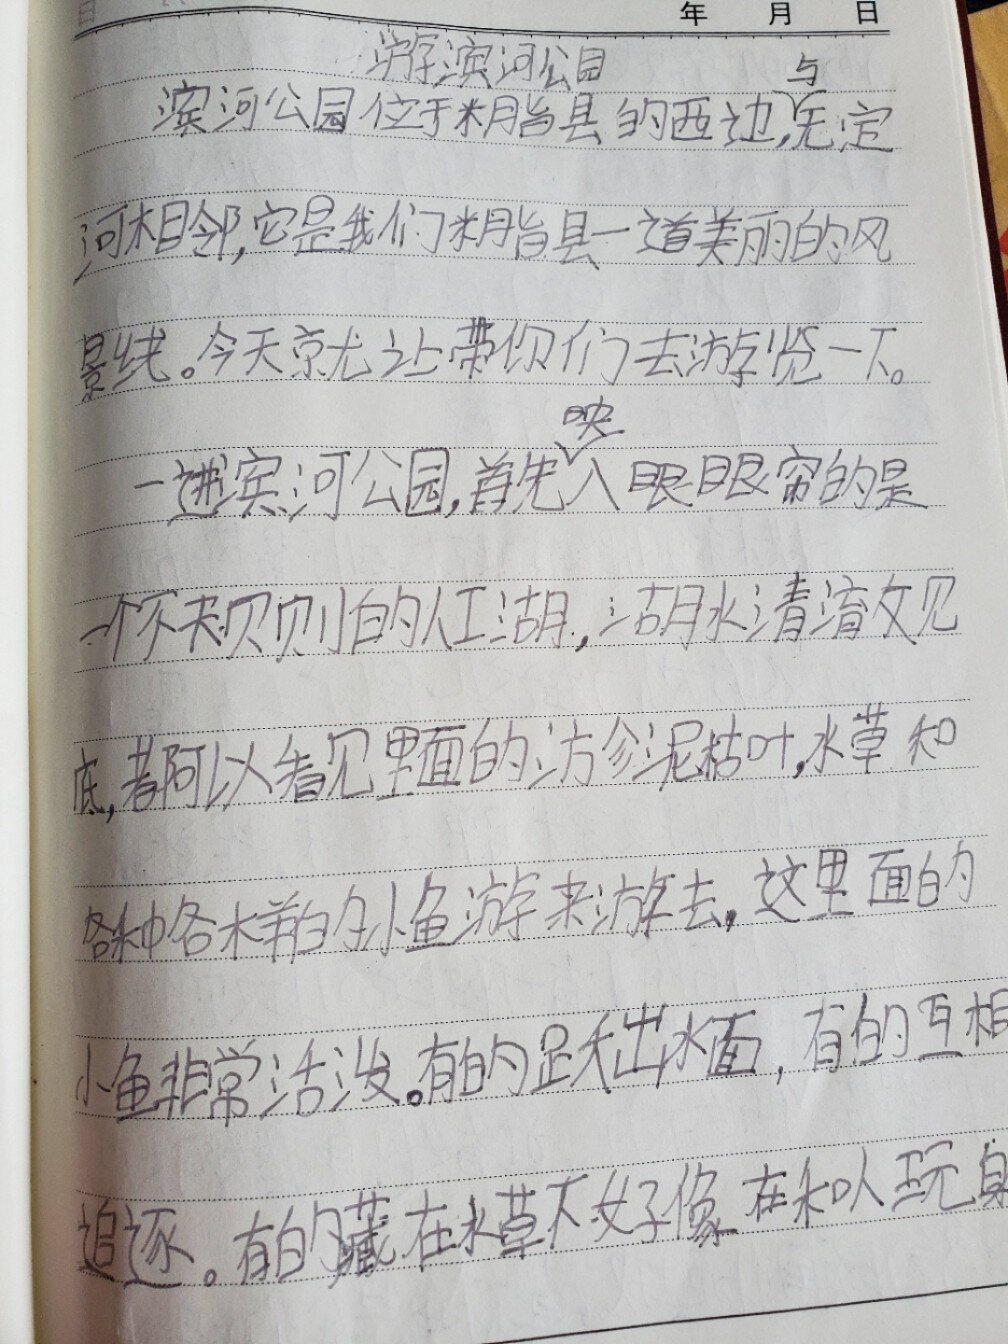 年 月 日
游滨河公园
滨河公园位于米脂县的西边,与无定
河相邻,它是我们米脂县一道美丽的风
景线。今天就让带你们去游览一下。
一进宾河公园,首先映入眼眼帘的是
一个不规则的人工湖,湖水清澈见
底,者阿以看见里面的淤泥枯叶,水草和
各种各样的小鱼游来游去。这里面的
小鱼非常活泼。有的跃出水面,有的互相
追逐。有的藏在水草不好像在和人玩